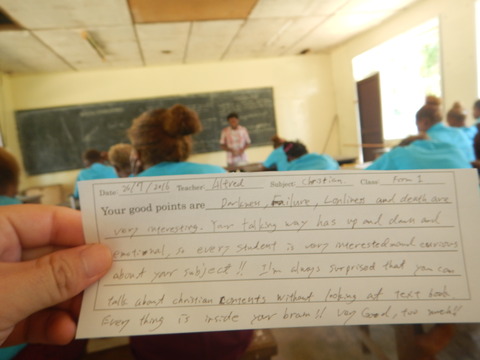 Date 26/9/2016 Teacher Alfred Subject Christian Class Form 1
Your good points are Darkness, failure, lonlines and death are
very interesting. Your talking way has up and down and
emotional, so every student is very interested and curious
about your subject!! I'm always surprised that you can
talk about christian contents without looking at text book
Every thing is inside your brain!! Very Good, too much!!